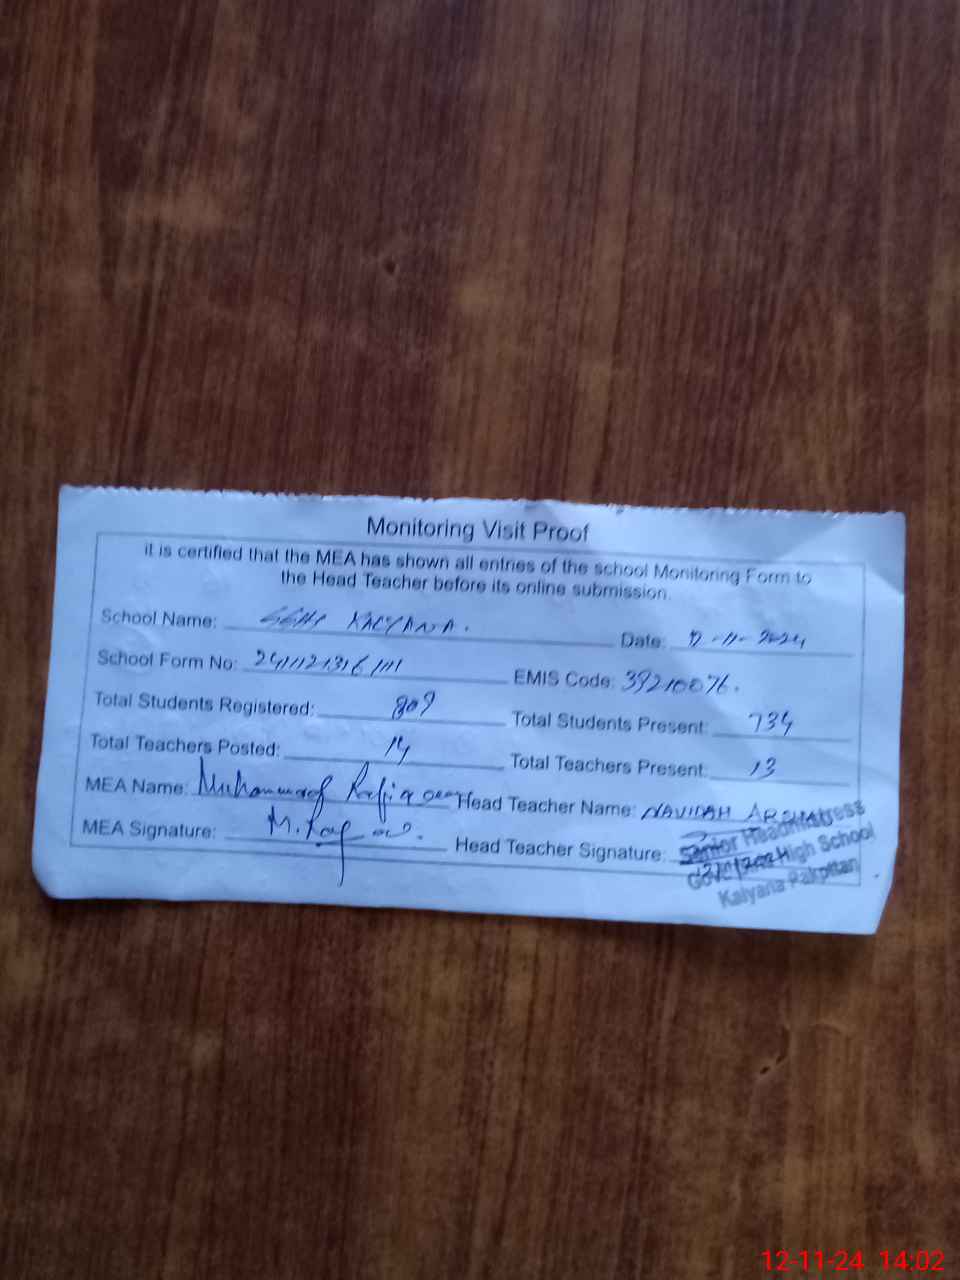 Monitoring Visit Proof
it is certified that the MEA has shown all entries of the school Monitoring Form to
the Head Teacher before its online submission.
School Name: GGHS KALYANA. Date: 12-11-2024
School Form No: EMIS Code: 39210076.
Total Students Registered: 809 Total Students Present: 734
Total Teachers Posted: 14 Total Teachers Present: 13
MEA Name: Muhammad Rafiq Head Teacher Name: NAVIDAH ARSHAD
MEA Signature: Head Teacher Signature:
Senior Headmistress
Govt High School
Kalyana Pakpttan
12-11-24 14:02